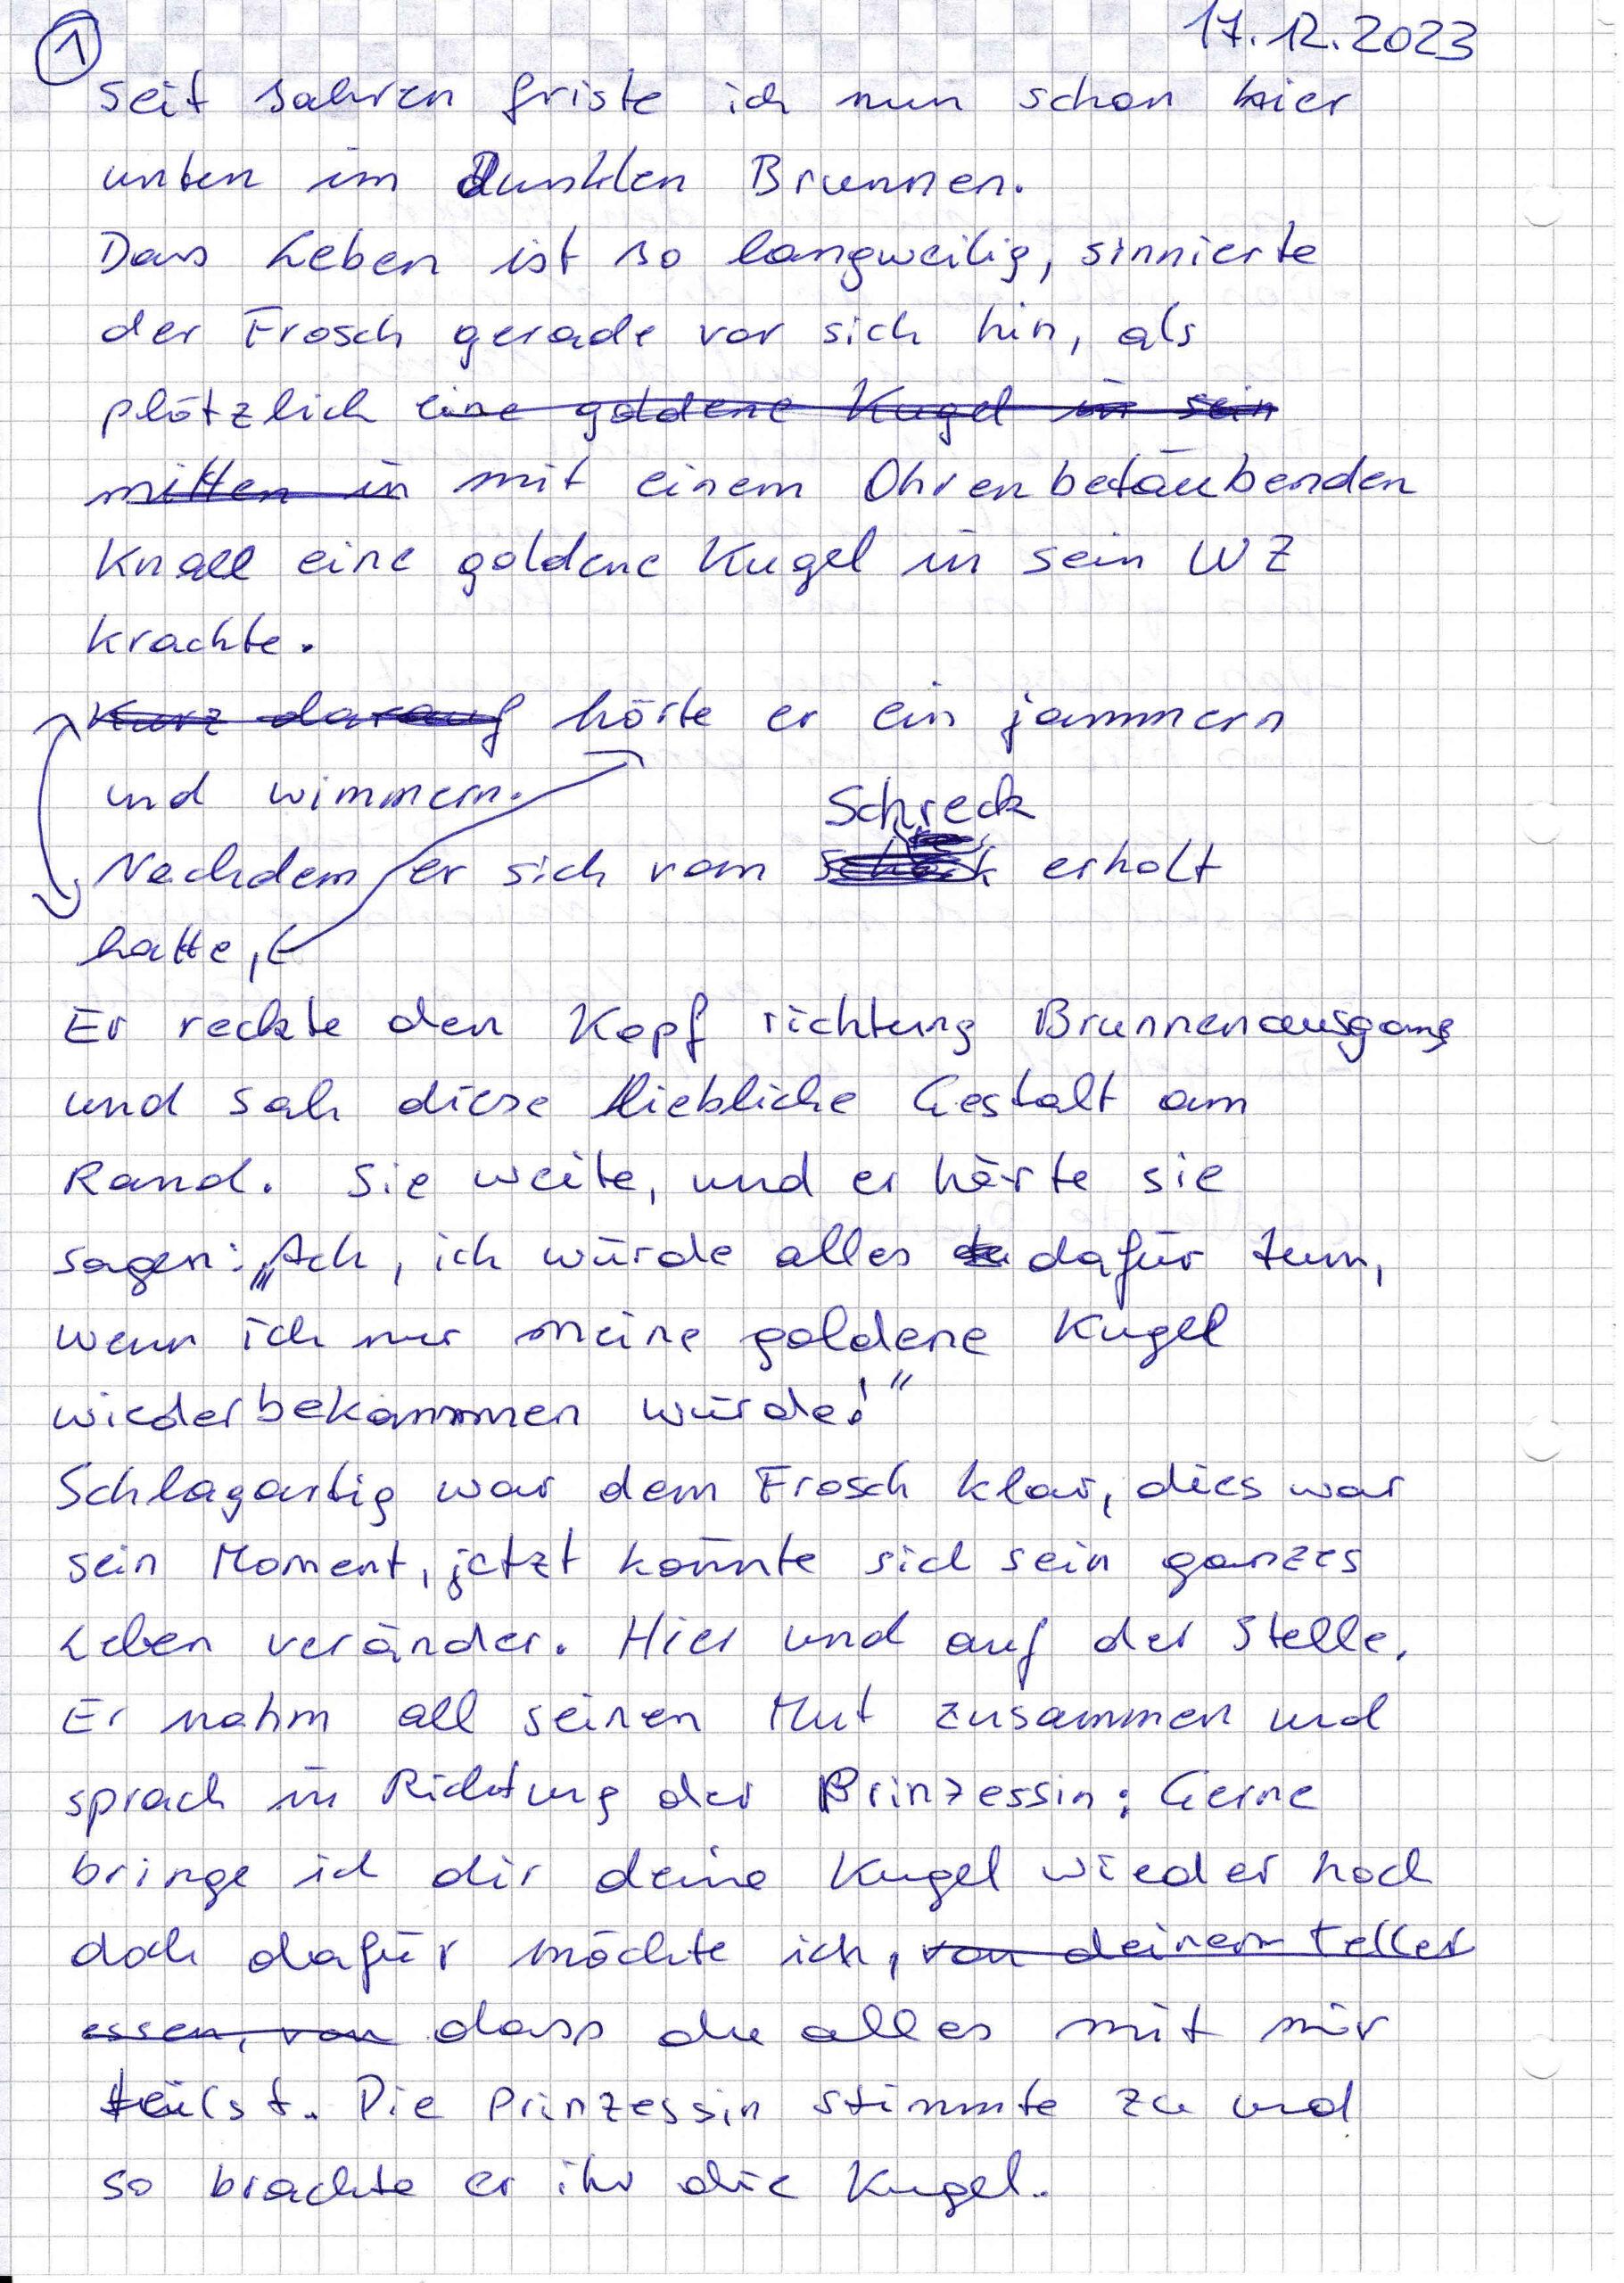 ① 17.12.2023
Seit Jahren friste ich nun schon hier
unten im dunklen Brunnen.
Das Leben ist so langweilig, sinnierte
der Frosch gerade vor sich hin, als
plötzlich eine goldene Kugel in sein
mitten in mit einem Ohrenbetäubenden
Knall eine goldene Kugel in sein WZ
krachte.
Kurz darauf hörte er ein jammern
und wimmern.
Schreck
Nachdem er sich vom erholt
hatte,
Er reckte den Kopf richtung Brunnenausgang
und sah diese liebliche Gestalt am
Rand. Sie weite, und er hörte sie
sagen: „Ach, ich würde alles dafür tun,
wenn ich nur meine goldene Kugel
wiederbekommen würde!“
Schlagartig war dem Frosch klar, dies war
sein Moment, jetzt könnte sich sein ganzes
Leben veränder. Hier und auf der Stelle.
Er nahm all seinen Mut zusammen und
sprach in Richtung der Prinzessin: Gerne
bringe ich dir deine Kugel wieder hoch
doch dafür möchte ich, von deinem Teller
essen, von dass du alles mit mir
teilst. Die Prinzessin stimmte zu und
so brachte er ihr die Kugel.